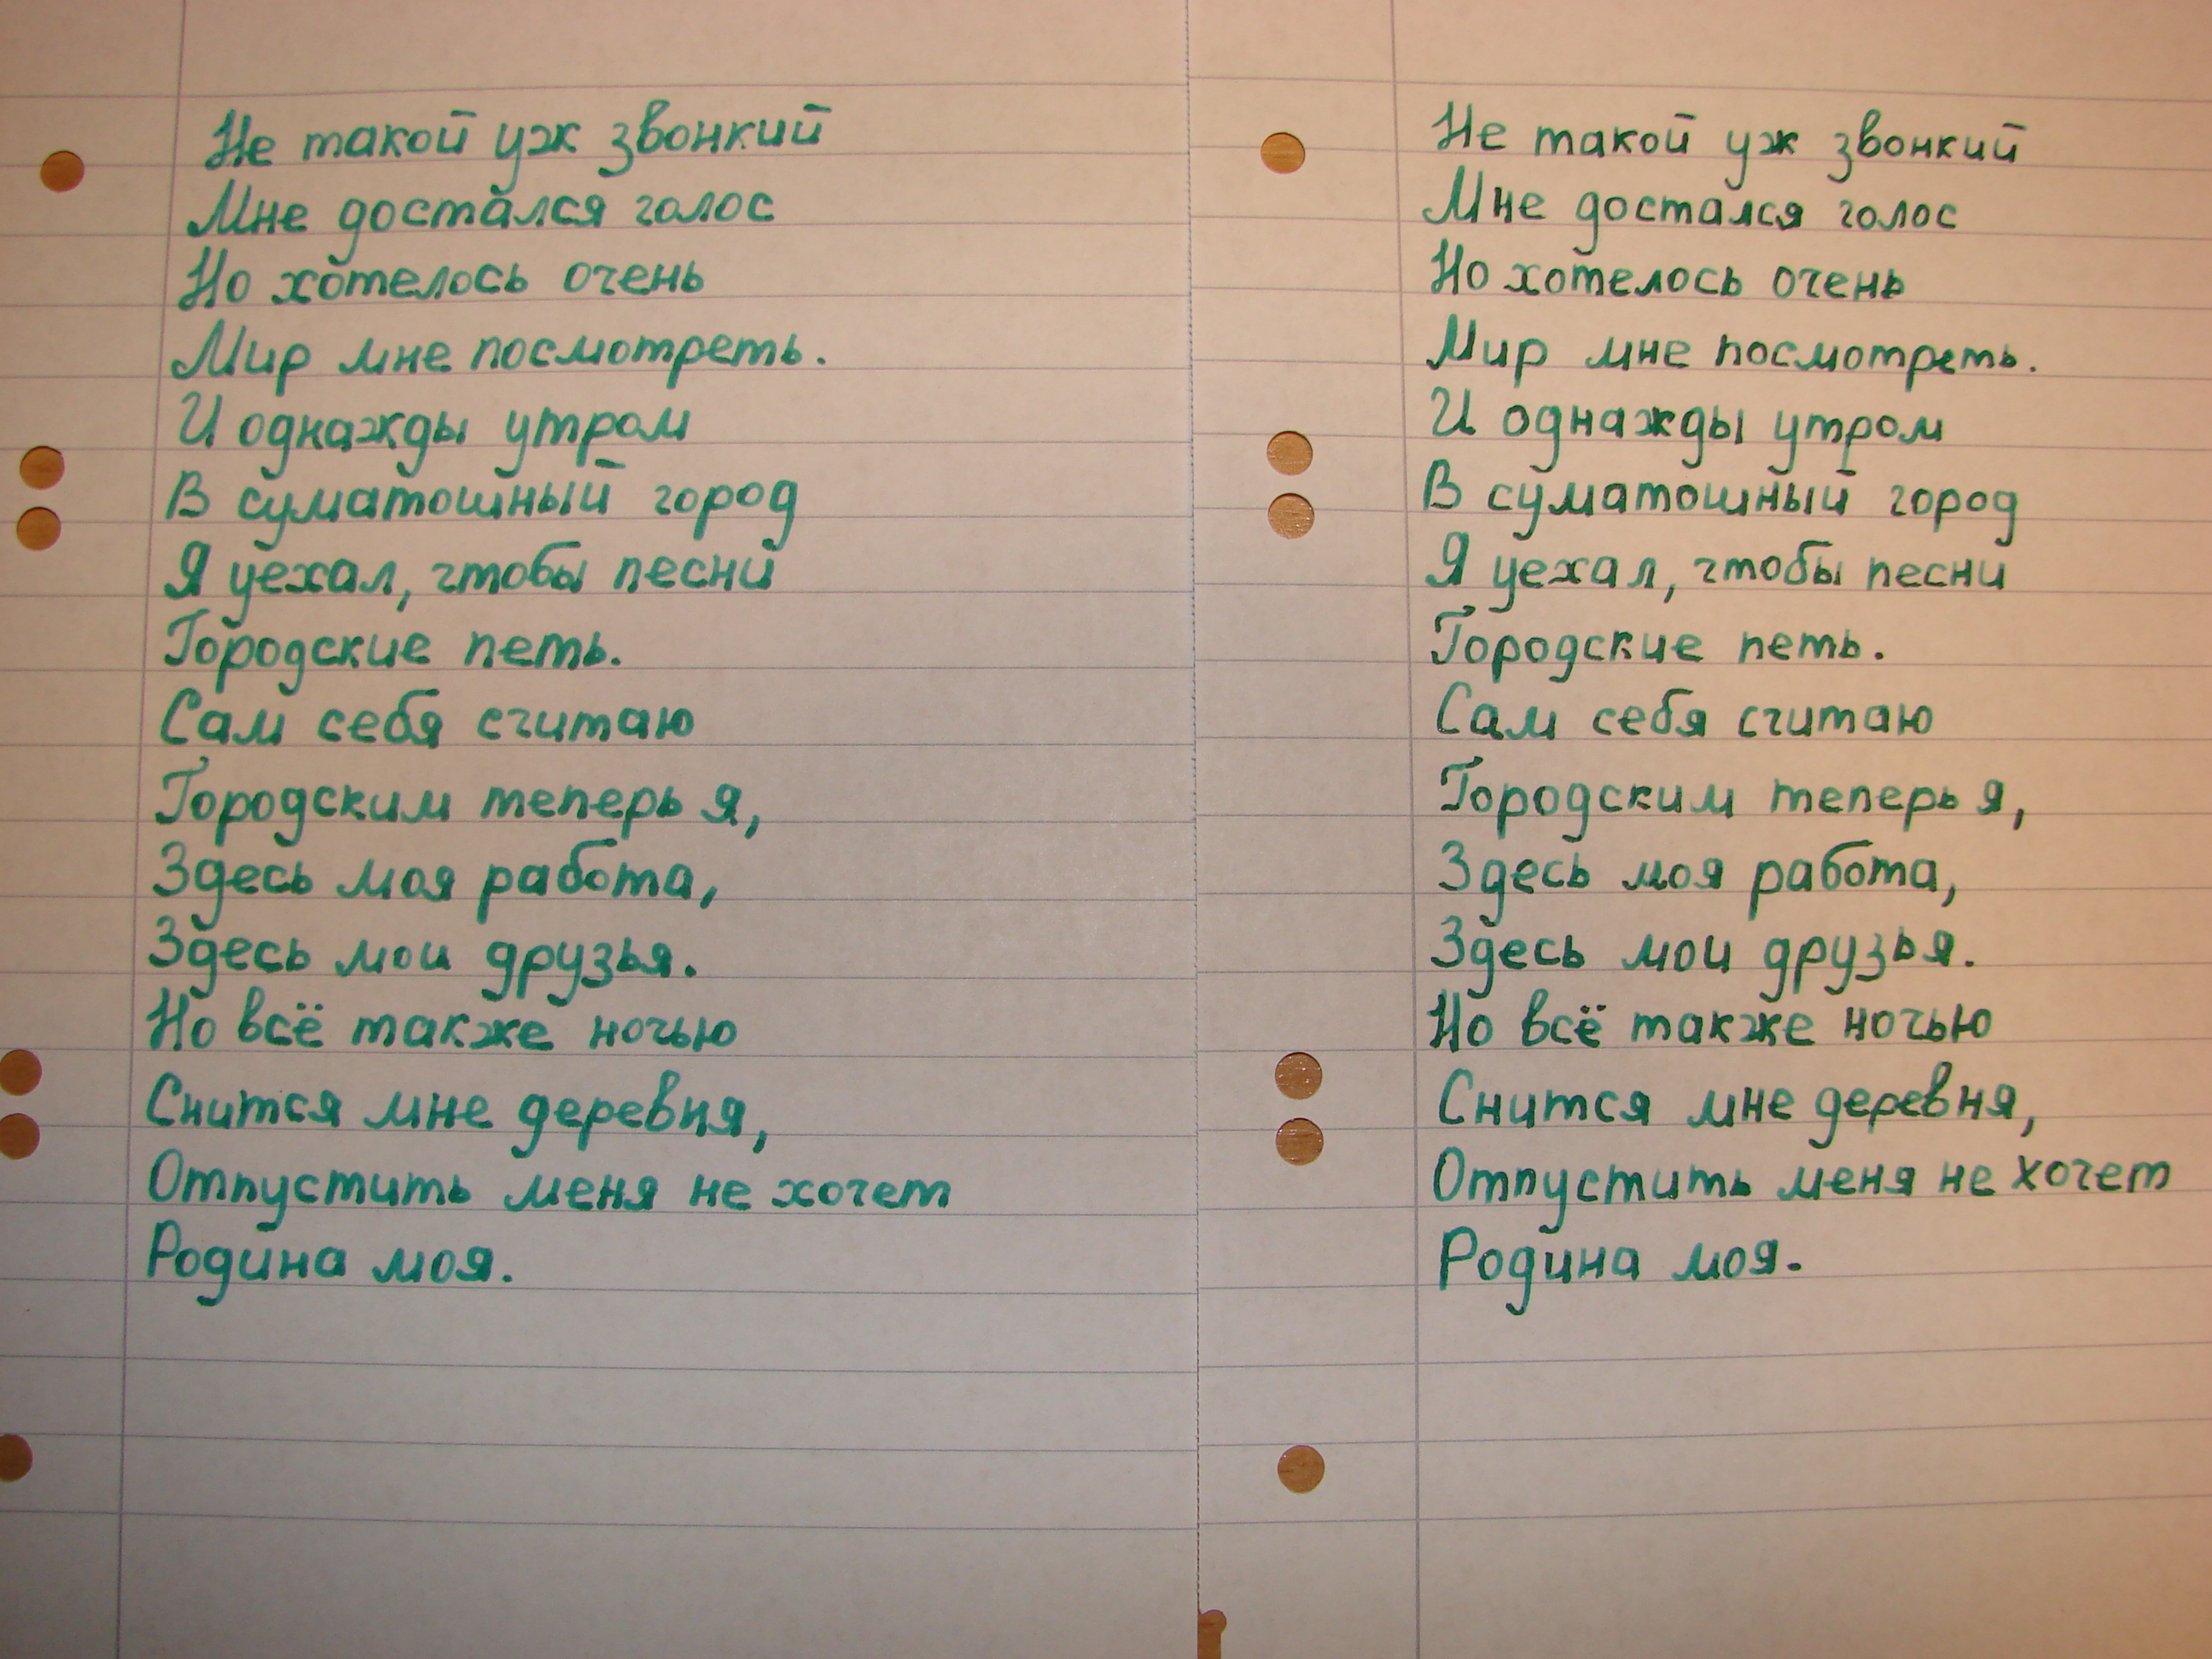 Не такой уж звонкий
Мне достался голос
Но хотелось очень
Мир мне посмотреть.
И однажды утром
В суматошный город
Я уехал, чтобы песни
Городские петь.
Сам себя считаю
Городским теперь я,
Здесь моя работа,
Здесь мои друзья.
Но всё также ночью
Снится мне деревня,
Отпустить меня не хочет
Родина моя.
Не такой уж звонкий
Мне достался голос
Но хотелось очень
Мир мне посмотреть.
И однажды утром
В суматошный город
Я уехал, чтобы песни
Городские петь.
Сам себя считаю
Городским теперь я,
Здесь моя работа,
Здесь мои друзья.
Но всё также ночью
Снится мне деревня,
Отпустить меня не хочет
Родина моя.